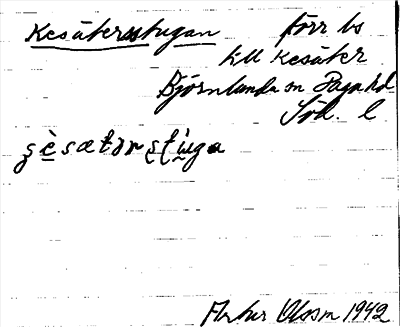 Kesätersstugan förr bs
till Kesäter
Björnlunda sn Daga hd
Söd. l
Arthur Olsson 1942